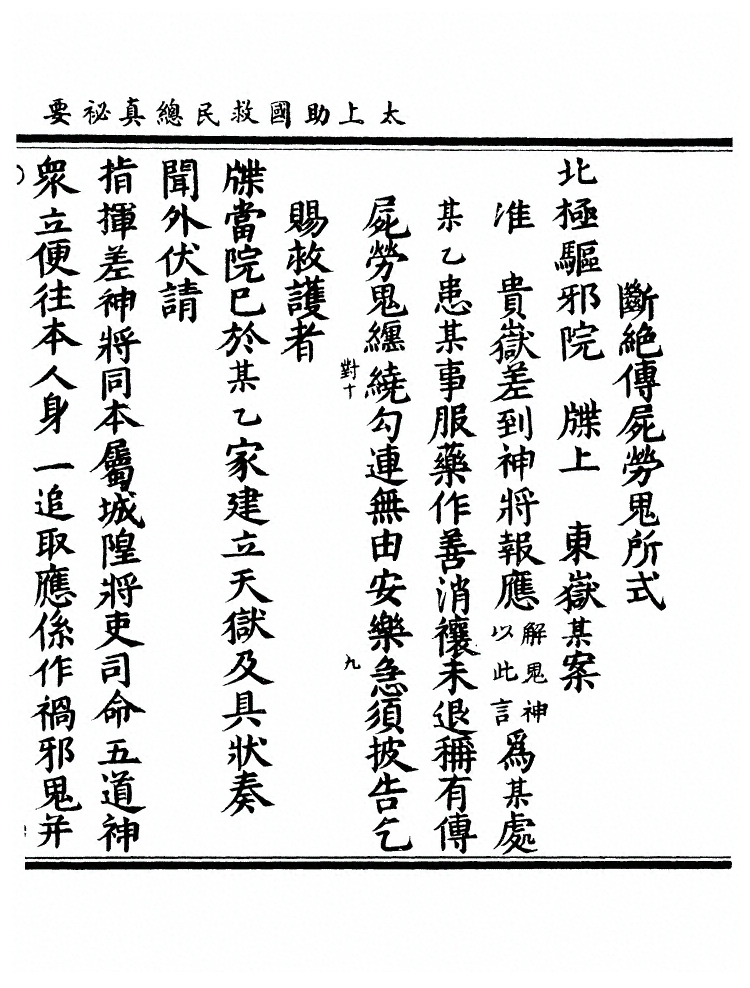 太上助國救民總真祕要
斷絕傳屍勞鬼所式
北極驅邪院　牒上　東嶽某案
准　貴嶽差到神將報應解鬼神以此言為某處
某乙患某事服藥作善消禳未退稱有傳
屍勞鬼纏繞勾連無由安樂急須披告乞
對十
九
賜救護者
牒當院已於某乙家建立天獄及具狀奏
聞外伏請
指揮差神將同本屬城隍將吏司命五道神
眾立便往本人身一追取應係作禍邪鬼并